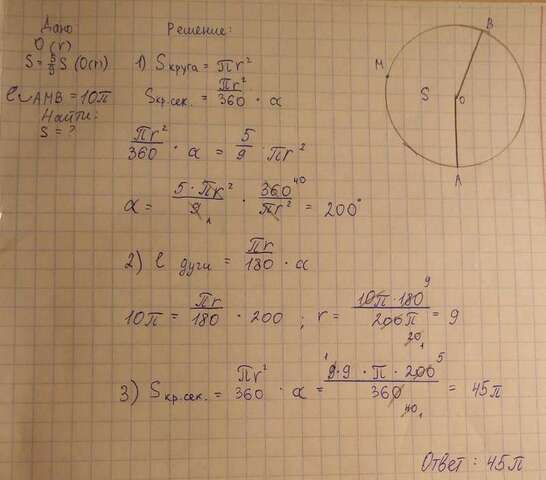 Дано
O (r)
S = 5/9 S (O(r))
l◡AMB = 10π
Найти:
S = ?
Решение:
1) S круга = πr²
S кр.сек. = πr²/360 · α
πr²/360 · α = 5/9 · πr²
α = 5·πr²/9 · 360/πr² = 200°
40
1
2) l дуги = πr/180 · α
10π = πr/180 · 200 ; r = 10π·180/200π = 9
9
20
1
3) S кр.сек. = πr²/360 · α = 9·9·π·200/360 = 45π
1
5
40
1
Ответ: 45π
B
M
S
O
A